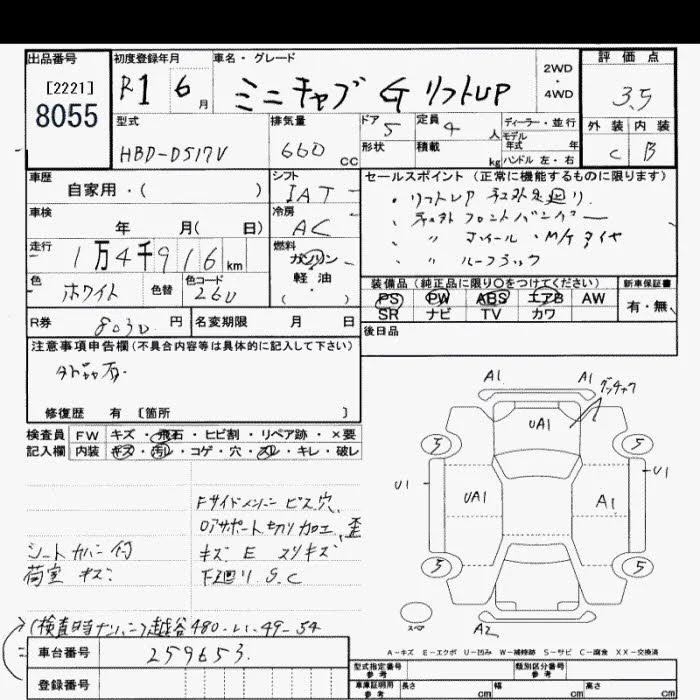 出品番号
[2221]
8055
初度登録年月
R1 6月
車名・グレード
ミニキャブ G リフトUP
2WD
・
4WD
評価点
3.5
外装 内装
C B
型式
HBD-DS17V
排気量
660 CC
ドア 5
形状
定員 4 人
積載 kg
ディーラー・並行
モデル
年式 年
ハンドル 左・右
車歴
自家用・( )
シフト
IAT
車検
年 月( 日)
冷房
AC
走行
1万4千916km
燃料
ガソリン
軽・油
・( )
色
ホワイト
色替
色コード
260
R券
8030 円
名変期限 月 日
セールスポイント (正常に機能するものに限ります)
・リフトUP 社外足廻り.
・社外フロントバンパー
・ 〃 ホイール・M/Tタイヤ
・ 〃 ルーフラック
装備品 (純正品に限り○をつけてください)
PS PW ABS エアB AW
SR ナビ TV カワ
新車保証書
有・無
後日品
注意事項申告欄 (不具合内容等は具体的に記入して下さい)
修復歴 有 [箇所 ]
検査員
記入欄
FW キズ・飛石・ヒビ割・リペア跡・×要
内装 キズ・汚レ・コゲ・穴・スレ・キレ・破レ
Fサイドメンバー ビス穴.
シートカバー付
キズ E スリキズ
荷室 キズ
下廻り S.C
(検査時ナンバー)越谷480-い-49-54
車台番号 259653.
登録番号
A1 A1
UA1
5 5
U1 U1
UA1 A1
5 5
スペア
A2
A-キズ E-エクボ U-凹み W-補修跡 S-サビ C-腐食 XX-交換済
型式指定番号
参考
類別区分番号
参考
車庫証明用
参考
長さ cm 幅 cm 高さ cm